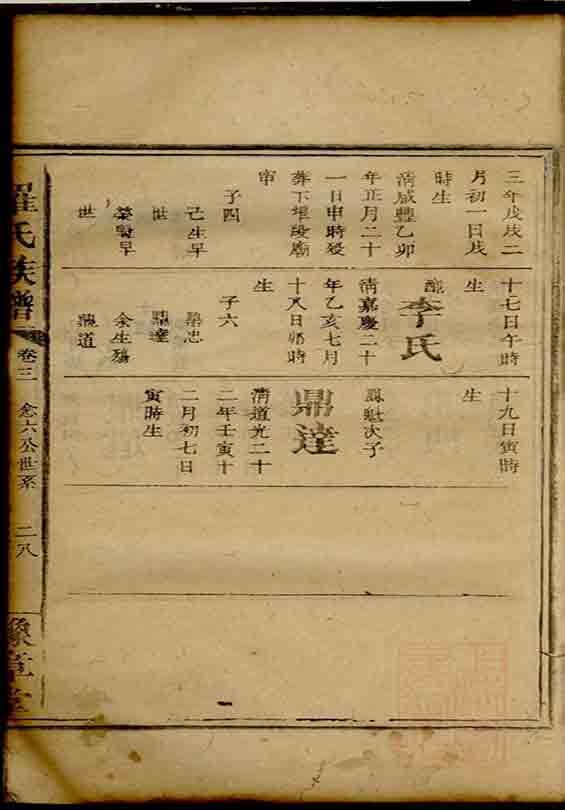 三年戊戌二
月初一日戌
時生
清咸豐乙卯
年正月二十
一日申時歿
葬下堆段廟
审
子四
己生早
世
榮賢早
世
十七日午時
生
配
李氏
清嘉慶二十
年乙亥七月
十八日卯時
生
子六
鼎忠
鼎達
余生殤
鼎道
十九日寅時
生
次子
鼎達
清道光二十
二年壬寅十
二月初七日
寅時生
羅氏族譜
卷三
念六公世系
二八
豫章堂